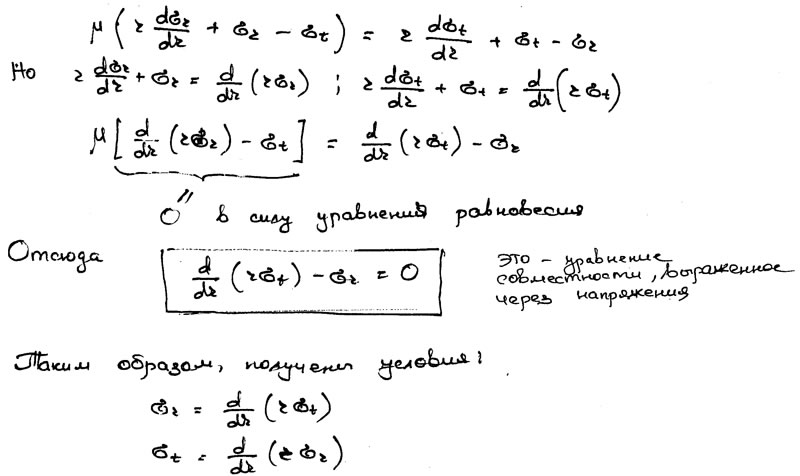 μ ( r dσr/dr + σr − σt ) = r dσt/dr + σt − σr
Но r dσr/dr + σr = d/dr (rσr) ; r dσt/dr + σt = d/dr (rσt)
μ [ d/dr (rσr) − σt ] = d/dr (rσt) − σr
0 в силу уравнения равновесия
Отсюда d/dr (rσt) − σr = 0
это – уравнение
совместности, выраженное
через напряжения
Таким образом, получены условия:
σr = d/dr (rσt)
σt = d/dr (rσr)